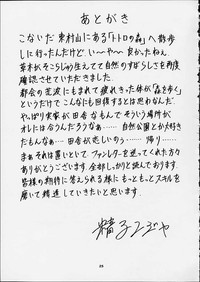 あとがき
こないだ東村山にある「トトロの森」へ散歩
しに行ったんだけど い〜や〜 良かったねぇ
草木がそこらじゅう生えてて自然のすばらしさを再度
確認させていただきました
都会の荒波にもまれて疲れきった体が「森を歩く」
というだけでこんなにも回復するとは思わなんだ
やっぱり実家が田舎なもんでそういう場所が
オレには合うんだろうなぁ… 自然公園とか大好き
だもんなぁ… 田舎が恋しいのぅ… 帰り…
まぁそれは置いといてファンレターを送ってくれた方々
ありがとうございます 全部しっかりと読んでおります
皆様の期待に答えられる様にもっともっとスキルを
磨いて精進していきたいと思います。